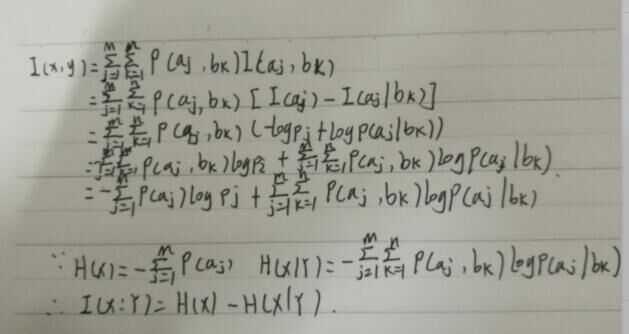 I(x,y)=∑_{j=1}^{m}∑_{k=1}^{n} P(aj,bk)I(aj,bk)
=∑_{j=1}^{m}∑_{k=1}^{n} P(aj,bk)[I(aj)-I(aj|bk)]
=∑_{j=1}^{m}∑_{k=1}^{n} P(aj,bk)(-logPj+logP(aj|bk))
=-∑_{j=1}^{m}∑_{k=1}^{n} P(aj,bk)logPj+∑_{j=1}^{m}∑_{k=1}^{n} P(aj,bk)logP(aj|bk).
=-∑_{j=1}^{m} P(aj)logPj+∑_{j=1}^{m}∑_{k=1}^{n} P(aj,bk)logP(aj|bk)
∵ H(X)=-∑_{j=1}^{m} P(aj), H(X|Y)=-∑_{j=1}^{m}∑_{k=1}^{n} P(aj,bk)logP(aj|bk)
∴ I(X:Y)=H(X)-H(X|Y).